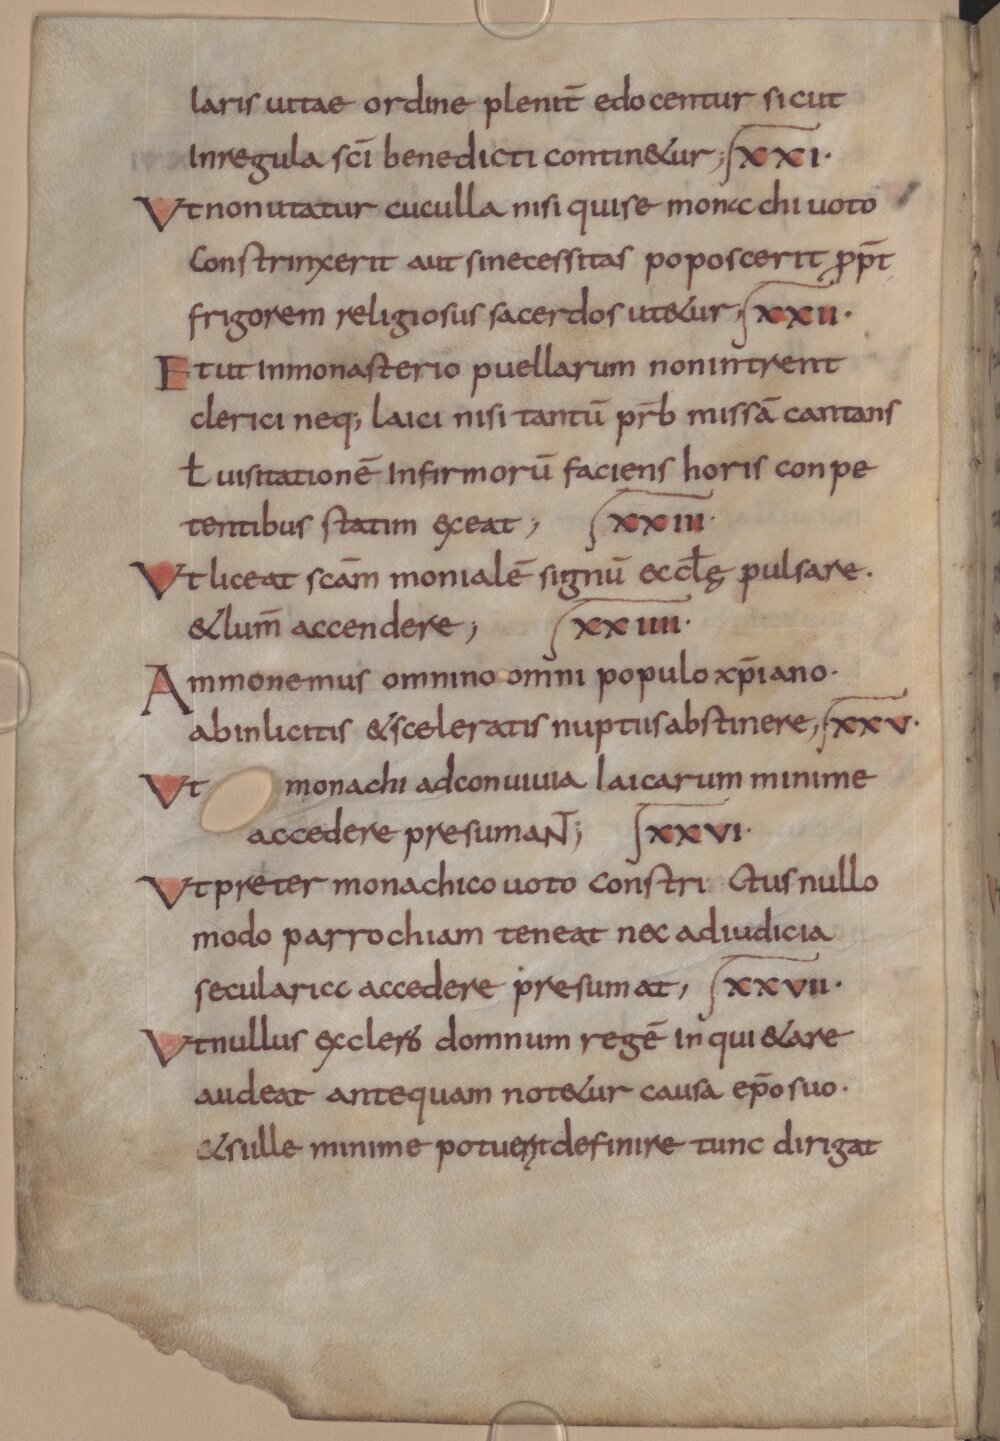 laris uitae ordine plenit̄ edocentur sicut
Inregula sc̄i benedicti contin&ur; XXI·
Vt non utatur cuculla nisi qui se monachi uoto
Constrinxerit aut si necessitas poposcerit p̄pt̄
frigorem religiosus sacerdos ut&ur; XXII·
Et ut In monasterio puellarum non intrent
clerici neq; laici nisi tantū pr̄b missā cantans
ł uisitationē Infirmorū faciens horis conpe
tentibus statim exeat; XXIII·
Vt liceat scām monialē signū eccłę pulsare·
& lum̄ accendere; XXIIII·
Ammonemus omnino omni populo xp̄iano·
ab inlicitis & sceleratis nuptiis abstinere; XXV·
Vt monachi ad conuiuia laicarum minime
accedere presumaNT; XXVI·
Vt preter monachico uoto constri ctus nullo
modo parrochiam teneat nec ad iudicia
secularia accedere presumat; XXVII·
Vt nullus ex clero domnum regē inqui&are
audeat antequam not&ur causa ep̄o suo·
& si ille minime potuerit definire tunc dirigat